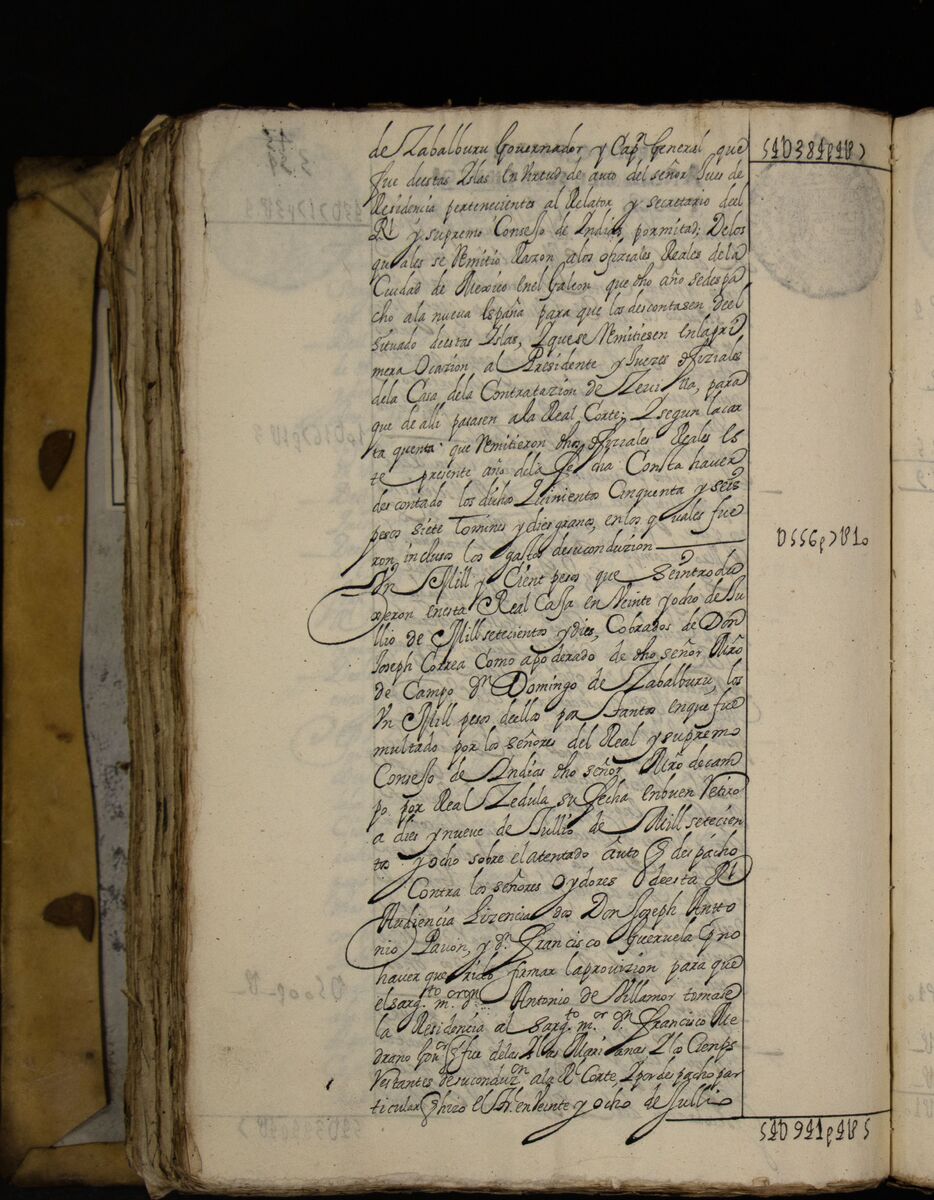 de Zabalburu Governador y Capn General que
fue deestas Yslas En Virtud de auto del señor Jues de
Residencia pertenecientes al Relator y secretario deel
Rl y supremo Consejo de Indias pormitad; Delos
quales se Remitio Razon alos ofiziales Reales dela
Ciudad de Mexico enel Galeon que dho año sedespa
cho ala nueva España para que los descontasen deel
situado deestas Yslas, Y quese Remitiesen enlapri
mera Ocazion al Presidente y Juezes ofiziales
dela Casa dela Contratazion de Zevilla, para
que de alli pasasen ala Real Corte; Y segun lacar
ta quenta que Remitieron dhos ofiziales Reales es
te presente año dela fecha Consta haver
descontado los dichos Quinientos Cinquenta y seis
pesos siete Tomines y dies granos, en los quales fue
ron inclusos los gastos desuconduzion
Un Mill y Cient pesos que seintrodu
xeron enesta Real Caxa en Veinte y ocho de Ju
llio de Mill setecientos y dies, Cobrados de Don
Joseph Correa Como apoderado de dho señor Mro
de Campo Dn Domingo de Zabalburu, los
Un Mill pesos deellos por tantos enque fue
multado por los señores del Real y supremo
Consejo de Indias dho señor Mro decam
po por Real Zedula su fecha enbuen Retiro
a dies y nueve de Jullio de Mill setecien
tos y ocho sobre el atentado auto q despacho
Contra los señores oydores deesta Rl
Audiencia Lizenciados Don Joseph Anto
nio Pavon, y dn Francisco Gueruela q no
haver querido firmar laprovizion para que
el sargto mor Dn Antonio de Villamor tomase
la Residencia al Sargto mor Dn Francisco Me
drano Govor q fue delas Yslas Marianas Y los Cien ps
restantes desuconduzn ala Rl Corte Y por despacho par
ticular q hizo el en Veinte y ocho de Jullio